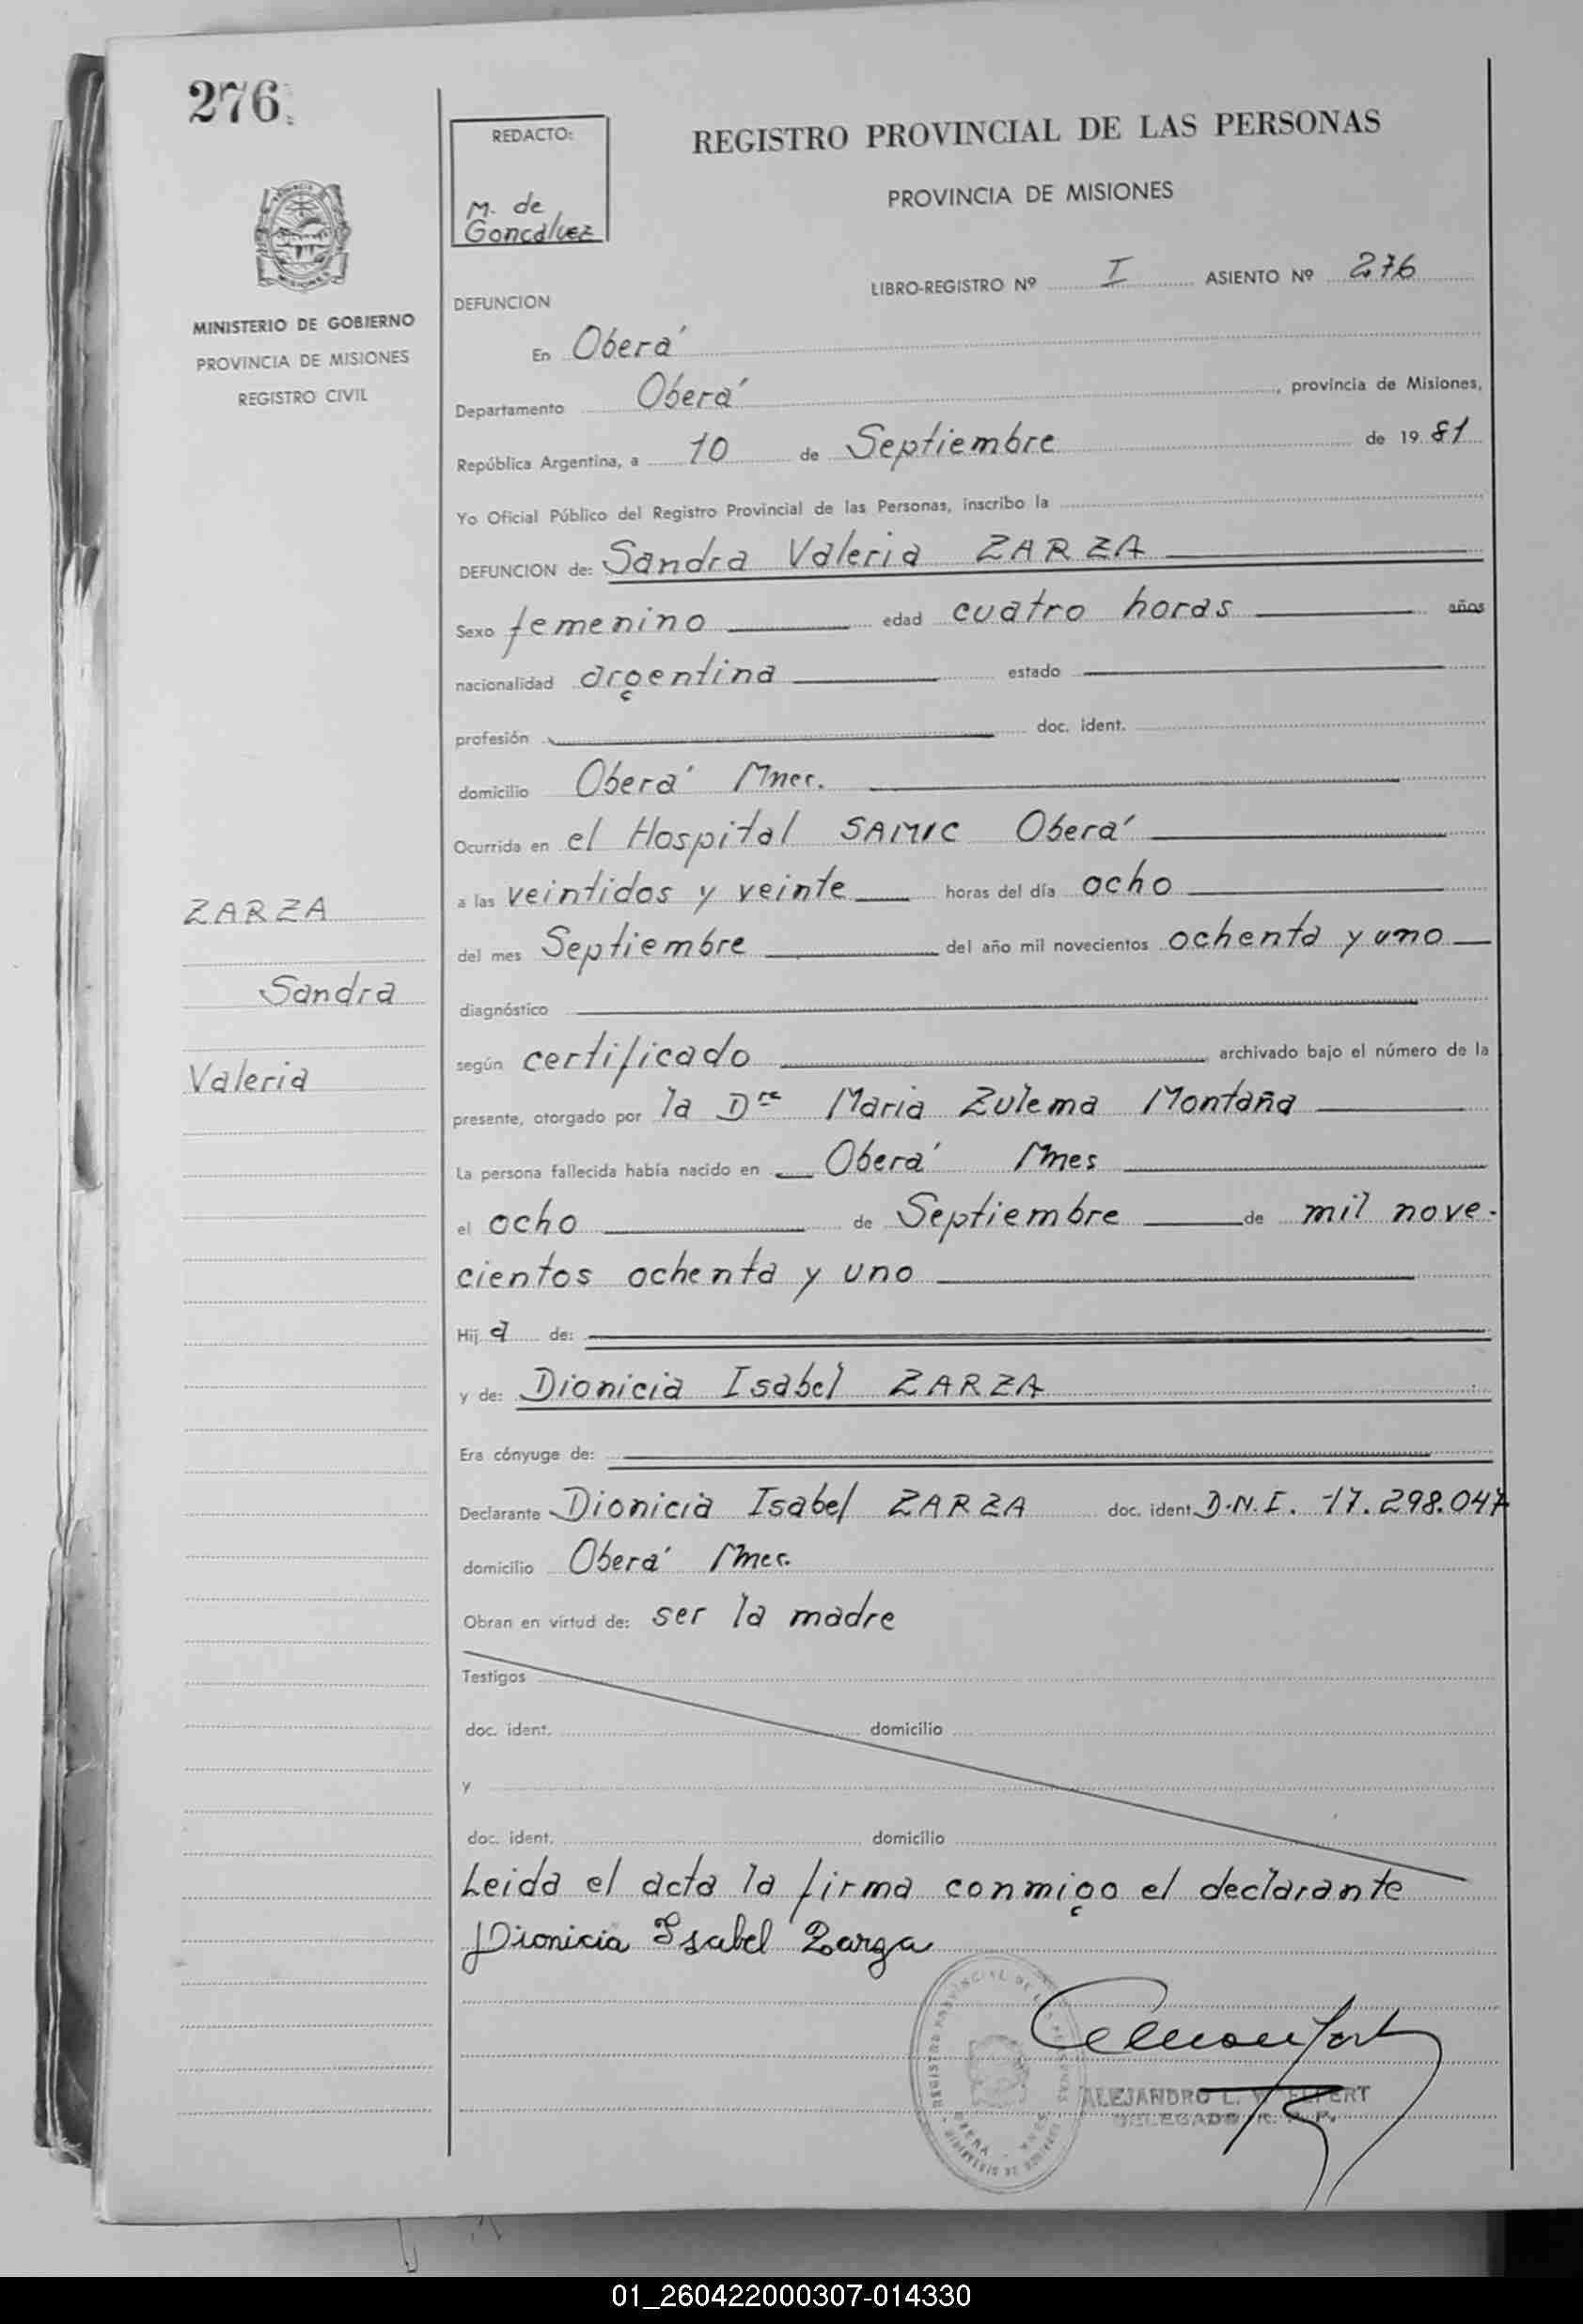 276.
REDACTO:
M. de
Goncalvez
REGISTRO PROVINCIAL DE LAS PERSONAS
PROVINCIA DE MISIONES
LIBRO-REGISTRO Nº I ASIENTO Nº 276
MINISTERIO DE GOBIERNO
PROVINCIA DE MISIONES
REGISTRO CIVIL
DEFUNCION
En Oberá
Departamento Oberá, provincia de Misiones,
República Argentina, a 10 de Septiembre de 1981
Yo Oficial Público del Registro Provincial de las Personas, inscribo la
DEFUNCION de: Sandra Valeria ZARZA
Sexo femenino edad cuatro horas años
nacionalidad argentina estado
profesión doc. ident.
domicilio Oberá Mnes.
Ocurrida en el Hospital SAMIC Oberá
a las veintidos y veinte horas del día ocho
del mes Septiembre del año mil novecientos ochenta y uno
diagnóstico
según certificado archivado bajo el número de la
presente, otorgado por la Dra Maria Zulema Montaña
La persona fallecida había nacido en Oberá Mnes
el ocho de Septiembre de mil nove-
cientos ochenta y uno
Hija de:
y de: Dionicia Isabel ZARZA
Era cónyuge de:
Declarante Dionicia Isabel ZARZA doc. ident. D.N.I. 17.298.047
domicilio Oberá Mnes.
Obran en virtud de: ser la madre
Testigos
doc. ident. domicilio
y
doc. ident. domicilio
Leida el acta la firma conmigo el declarante
Dionicia Isabel Zarza
ZARZA
Sandra
Valeria
REGISTRO PROVINCIAL DE LAS PERSONAS
ALEJANDRO L.
DELEGADO R. P. P.
01_260422000307-014330